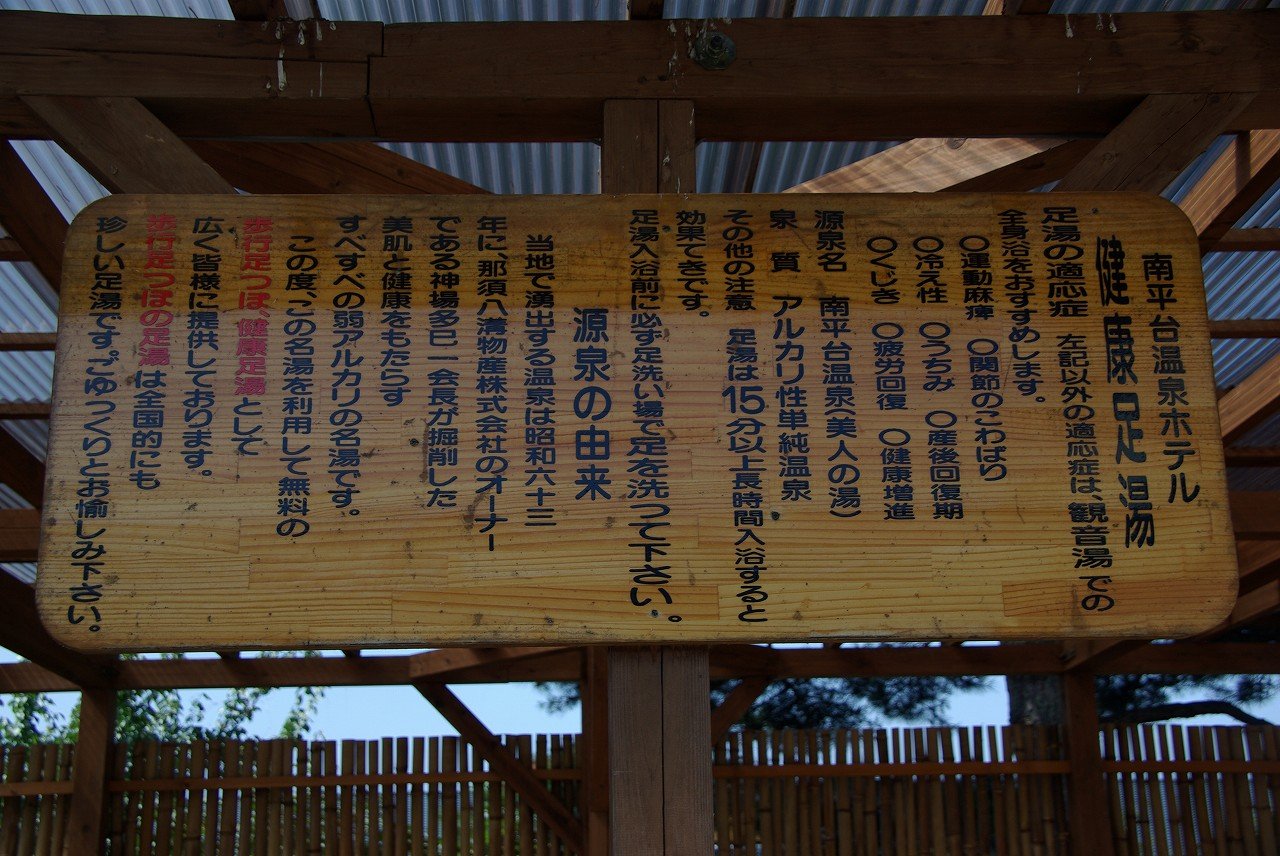 南平台温泉ホテル
健康足湯
足湯の適応症 左記以外の適応症は、観音湯での
全身浴をおすすめします。
〇運動麻痺 〇関節のこわばり
〇冷え性 〇うちみ 〇産後回復期
〇くじき 〇疲労回復 〇健康増進
源泉名 南平台温泉（美人の湯）
泉質 アルカリ性単純温泉
その他の注意 足湯は15分以上長時間入浴すると
効果てきです。
足湯入浴前に必ず足洗い場で足を洗って下さい。
源泉の由来
当地で湧出する温泉は昭和六十三
年に、那須八溝物産株式会社のオーナー
である神場多巳一会長が掘削した
美肌と健康をもたらす
すべすべの弱アルカリの名湯です。
この度、この名湯を利用して無料の
歩行足つぼ、健康足湯として
広く皆様に提供しております。
歩行足つぼの足湯は全国的にも
珍しい足湯です。ごゆっくりとお愉しみ下さい。